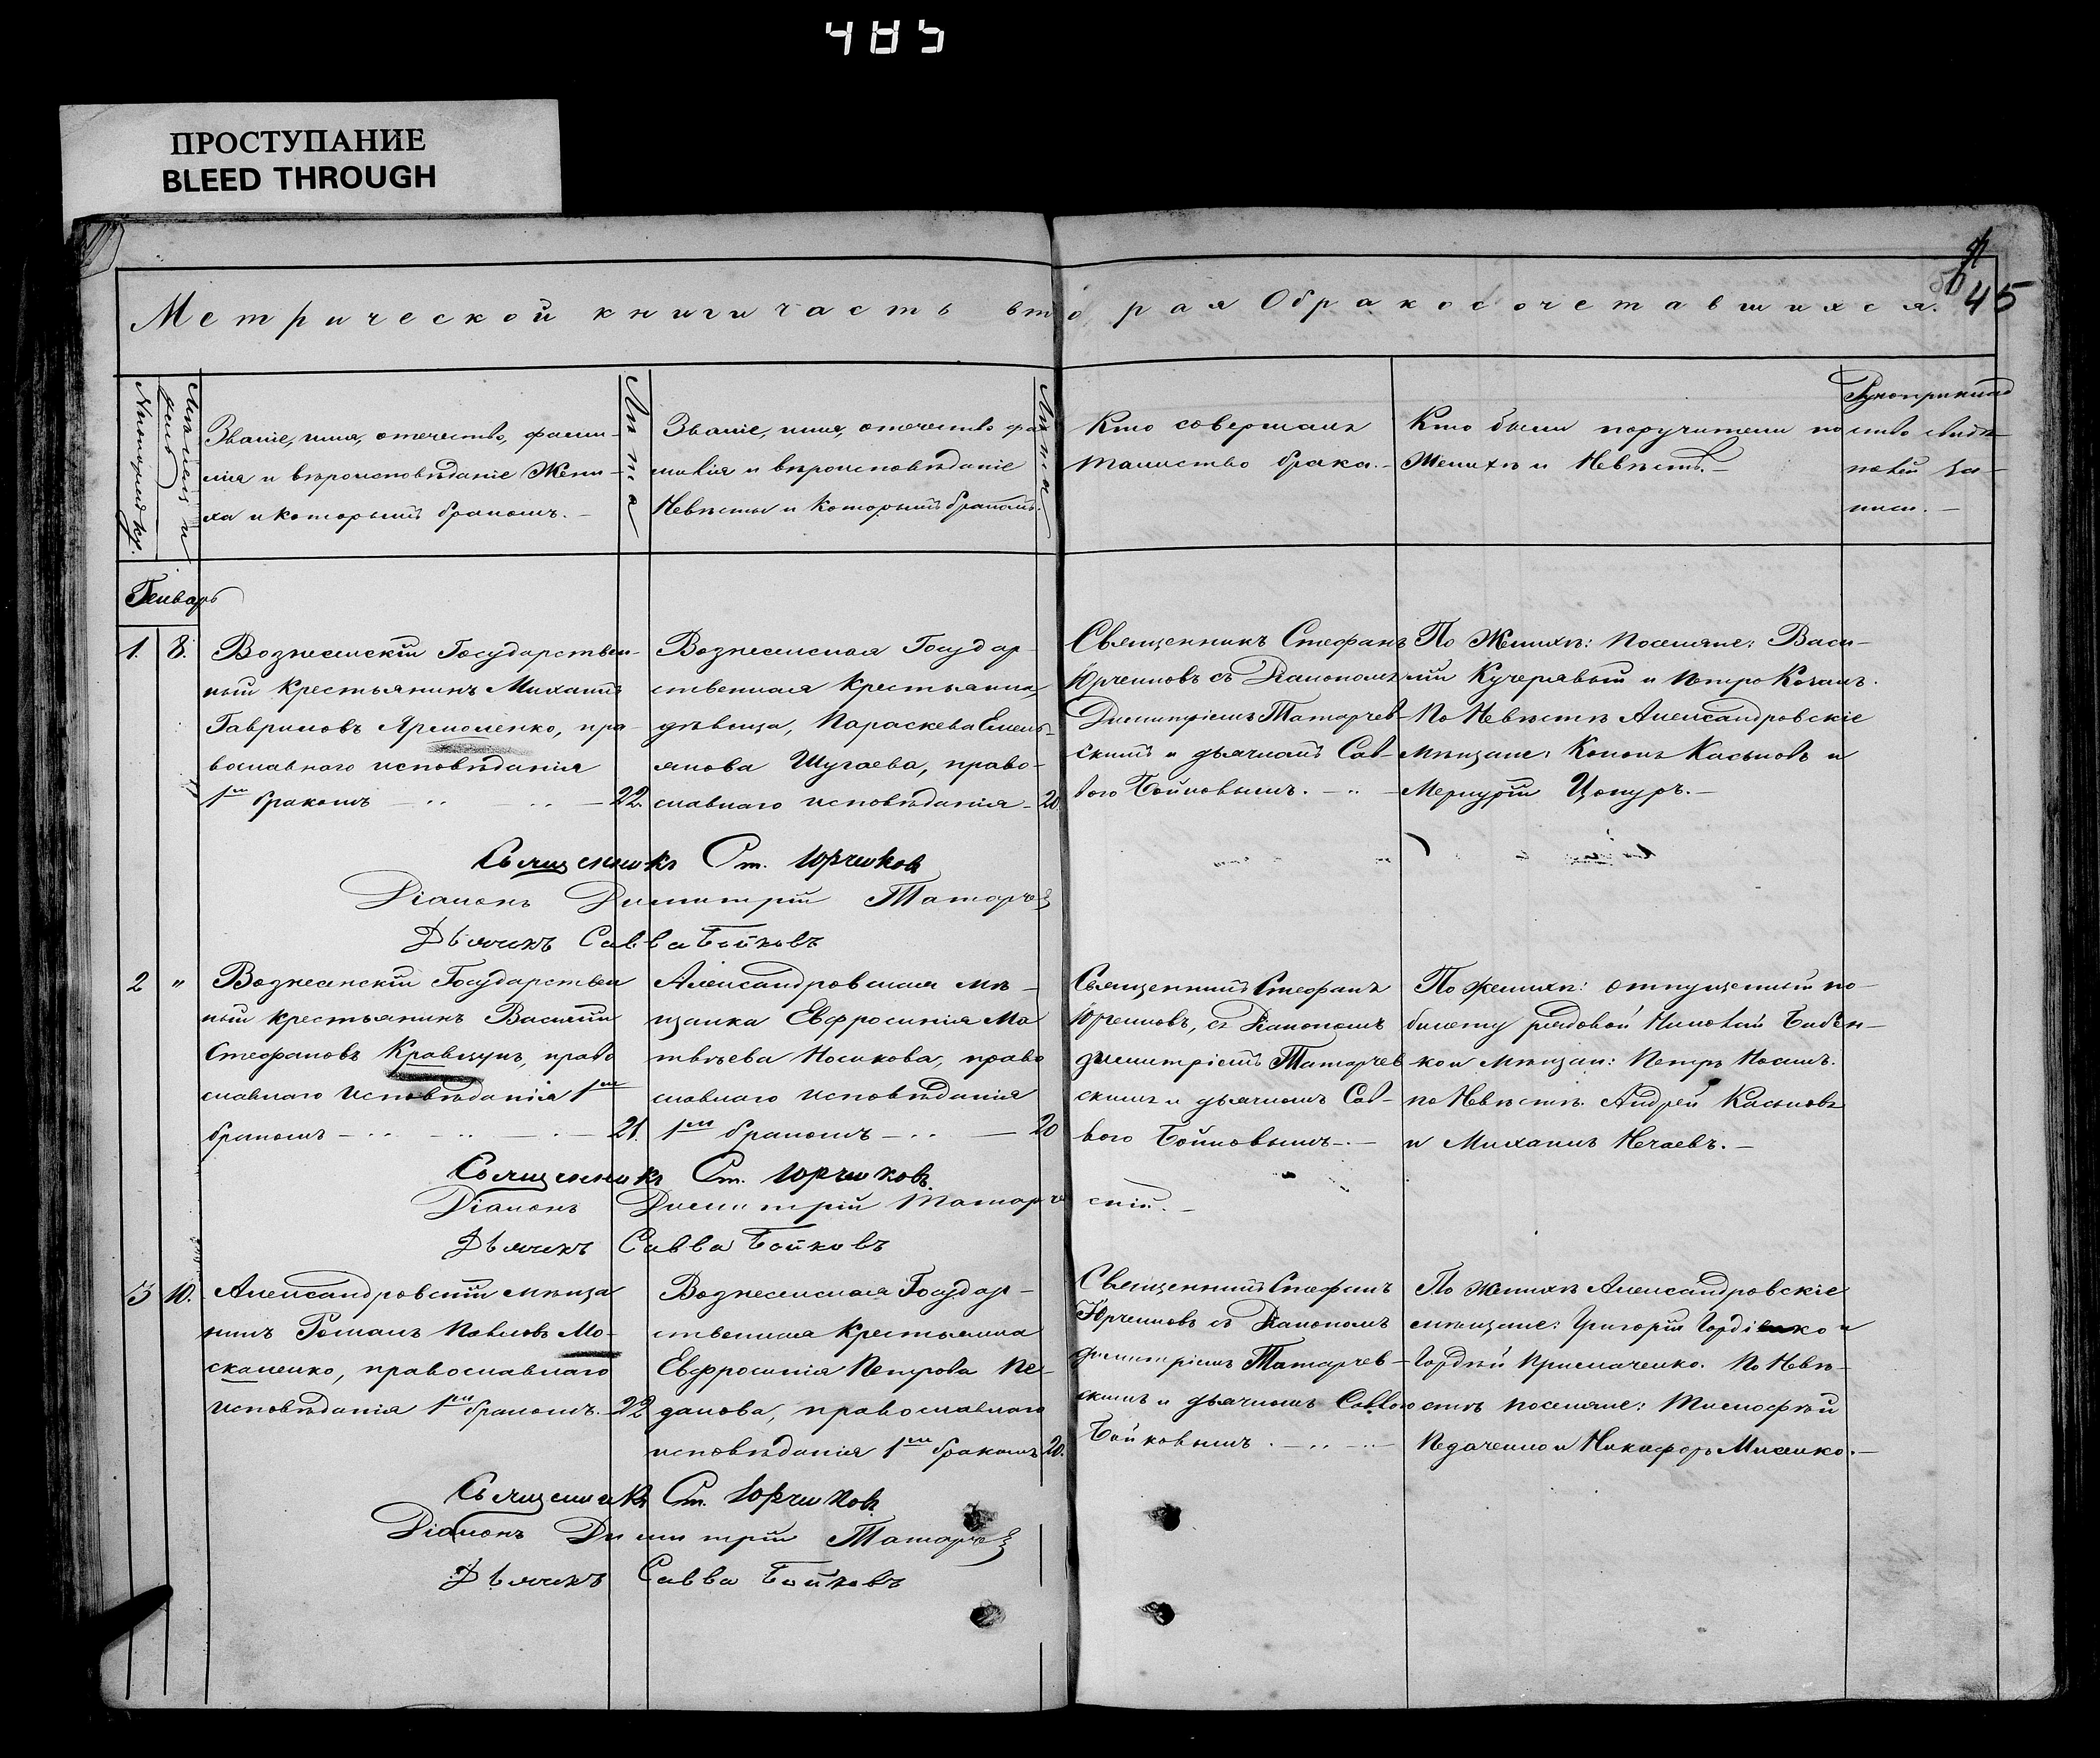 485
ПРОСТУПАНИЕ
BLEED THROUGH
45
Метрической книги часть вторая О бракосочетавшихся.
Мѣсяцъ и день
Званіе, имя, отечество, фами-
лія и вѣроисповѣданіе Жени-
ха и которымъ бракомъ. -
Лѣта
Званіе, имя, отечество фа
милія и вѣроисповѣданіе
Невѣсты и Которымъ бракомъ.
Лѣта
Кто совершалъ
таинство брака. -
Кто были поручители по
Женихѣ и Невѣстѣ. -
Рукоприклад
ство свидѣ
за-
писи. -
Генварь
1. 8.
Вознесенскій Государствен-
ный Крестьянинъ Михаилъ
Гавриловъ Ярмоленко, пра-
вославнаго исповѣданія
1мъ бракомъ - 22.
Вознесенская Государ-
ственная Крестьянка,
дѣвица, Параскева Емель-
янова Шугаева, право-
славнаго исповѣданія - 20.
Священникъ Стефанъ
Юрченковъ съ Діакономъ
Димитріемъ Татарчев-
скимъ и дьячкомъ Сав-
вою Бойковымъ. -
По Женихѣ: поселяне: Васи-
лій Кучерявый и Петро Кочанъ.
По Невѣстѣ Александровскіе
мѣщане: Кононъ Касьновъ и
Меркурій Цокуръ. -
Священникъ Ст. Юрченковъ
Діаконъ Димитрій Татарчев
Дьячекъ Савва Бойковъ
2 "
Вознесенскій Государствен
ный крестьянинъ Василій
Стефановъ Кравцунъ, право
славнаго исповѣданія 1мъ
бракомъ - 21.
Александровская мѣ-
щанка Евфросинія Ма
твѣева Носикова, право
славнаго исповѣданія
1мъ бракомъ - 20
Священникъ Стефанъ
Юрченковъ, съ Діакономъ
Димитріемъ Татарчев
скимъ и дьячкомъ Сав-
вою Бойковымъ. -
По женихѣ: отпущенный по-
билету рядовой Николай Бабен-
ко и мѣщан: Петръ Носикъ.
по Невѣстѣ. Андрей Касьновъ
и Михаилъ Нечаевъ. -
Священникъ Ст. Юрченковъ.
Діаконъ Димитрій Татарчев
скій. -
Дьячекъ Савва Бойковъ
3 10.
Александровскій мѣща
нинъ Романъ Павловъ Мо-
скаленко, православнаго
исповѣданія 1мъ бракомъ. - 22
Вознесенская Государ-
ственная Крестьянка
Евфросинія Петрова Пе-
дакова, православнаго
исповѣданія 1мъ бракомъ 20.
Священникъ Стефанъ
Юрченковъ съ Діакономъ
Димитріемъ Татарчев-
скимъ и дьячкомъ Саввою
Бойковымъ. -
По Женихѣ Александровскіе
мѣщане: Григорій Гордіенко и
Гордѣй Примаченко. По Невѣ-
стѣ поселяне: Тимофѣй
Педаченко и Никифоръ Мисенко. -
Священникъ Ст. Юрченковъ
Діаконъ Димитрій Татарчев
Дьячекъ Савва Бойковъ